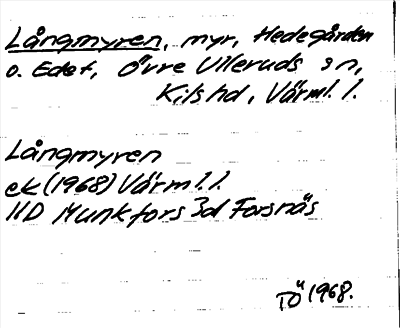 Långmyren, myr, Hedegården
o. Edet, Övre Ulleruds sn,
Kils hd, Värml. l.
Långmyren
ek (1968) Värml. l.
11D Munkfors 3d Forsnäs
TÖ 1968.